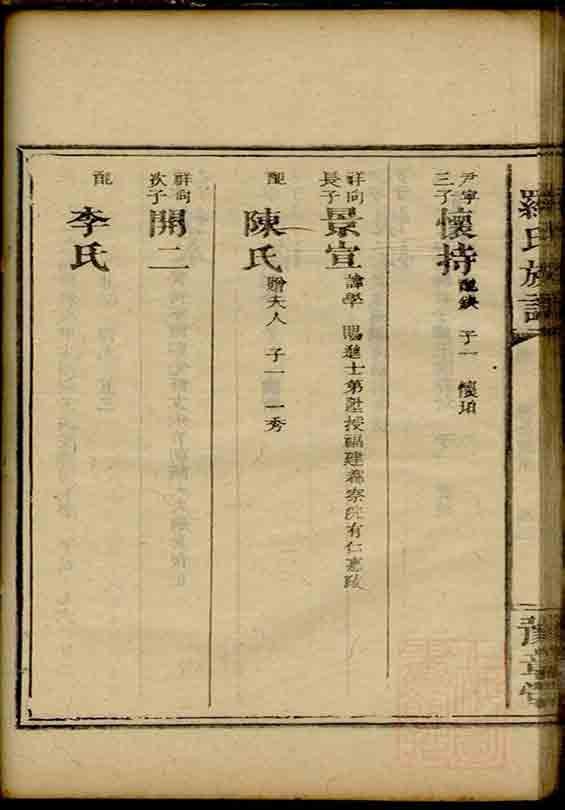 羅氏族譜
豫章堂
尹寧三子 懷持 配缺 子一 懷珀
祥向長子 景宣 諱學 賜進士第陞授福建都察院有仁惠政
配 陳氏 贈夫人 子一 一秀
祥向次子 開二
配 李氏